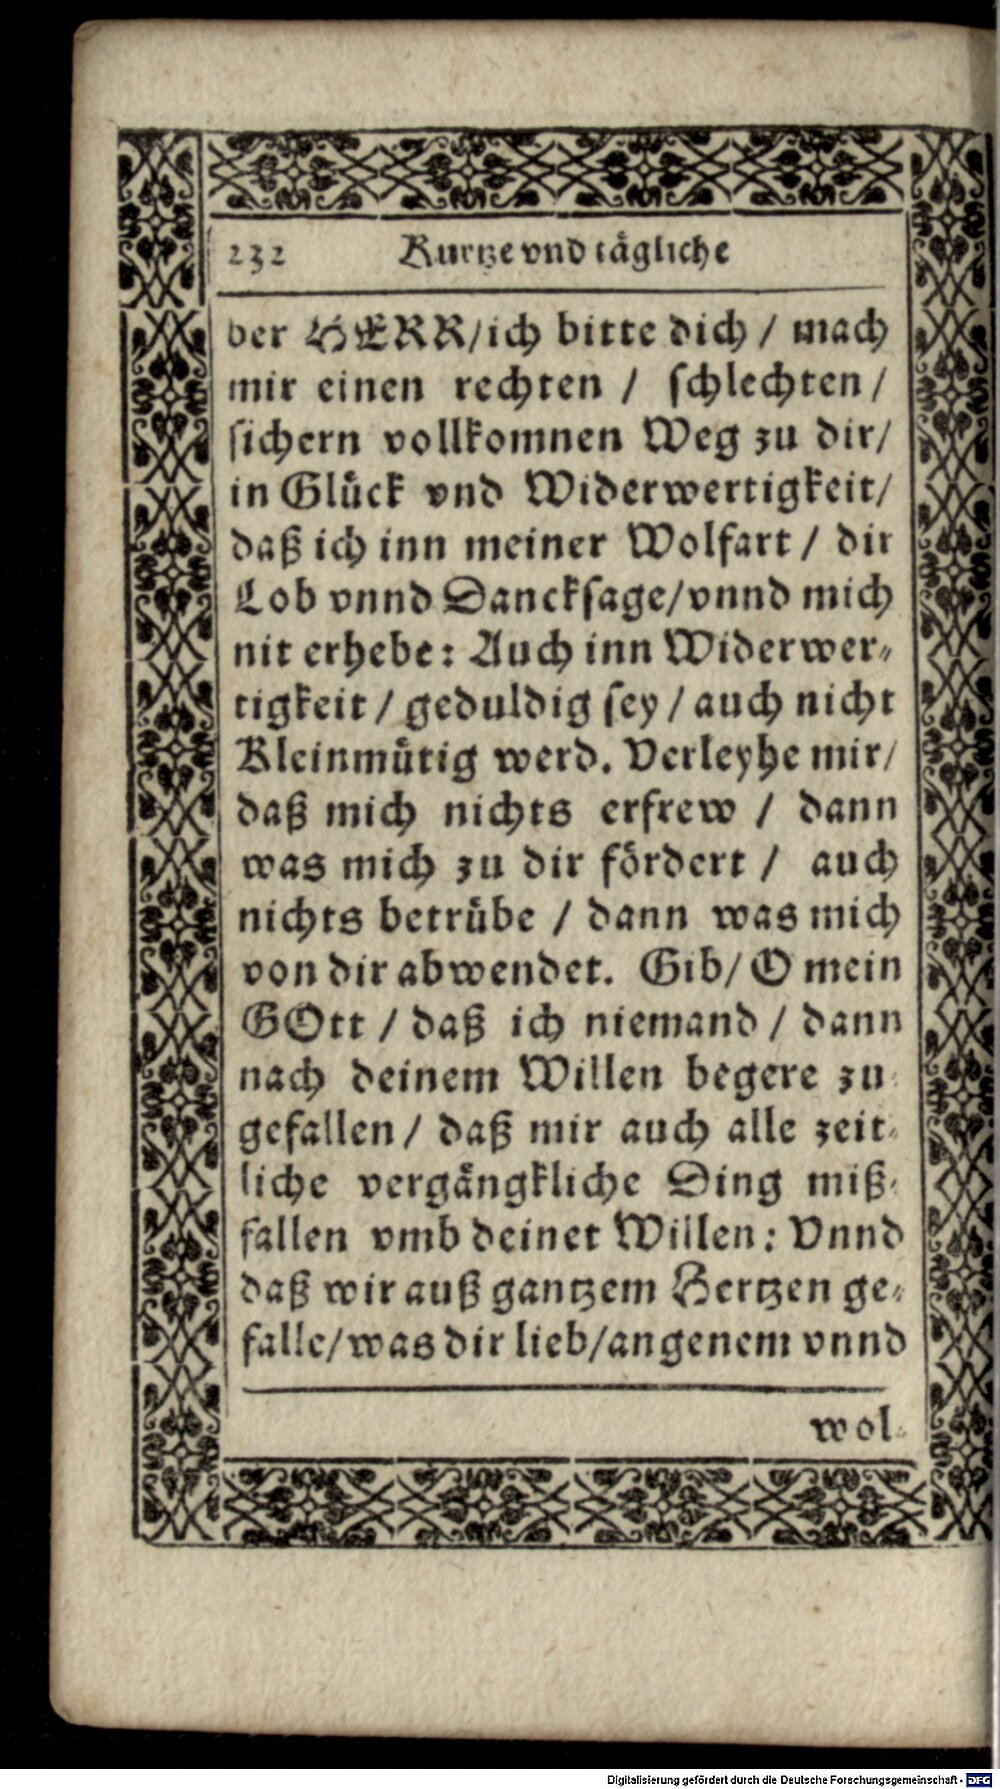 232 Kurtze vnd tägliche
ber HERR/ich bitte dich / mach
mir einen rechten / schlechten /
sichern vollkomnen Weg zu dir/
in Glück vnd Widerwertigkeit/
daß ich inn meiner Wolfart / dir
Lob vnnd Dancksage/vnnd mich
nit erhebe: Auch inn Widerwer-
tigkeit / geduldig sey / auch nicht
Kleinmütig werd. Verleyhe mir/
daß mich nichts erfrew / dann
was mich zu dir fördert / auch
nichts betrübe / dann was mich
von dir abwendet. Gib/ O mein
GOtt / daß ich niemand / dann
nach deinem Willen begere zu
gefallen / daß mir auch alle zeit-
liche vergängkliche Ding miß-
fallen vmb deinet Willen: Vnnd
daß wir auß gantzem Hertzen ge-
falle/was dir lieb/angenem vnnd
wol-
Digitalisierung gefördert durch die Deutsche Forschungsgemeinschaft - DFG